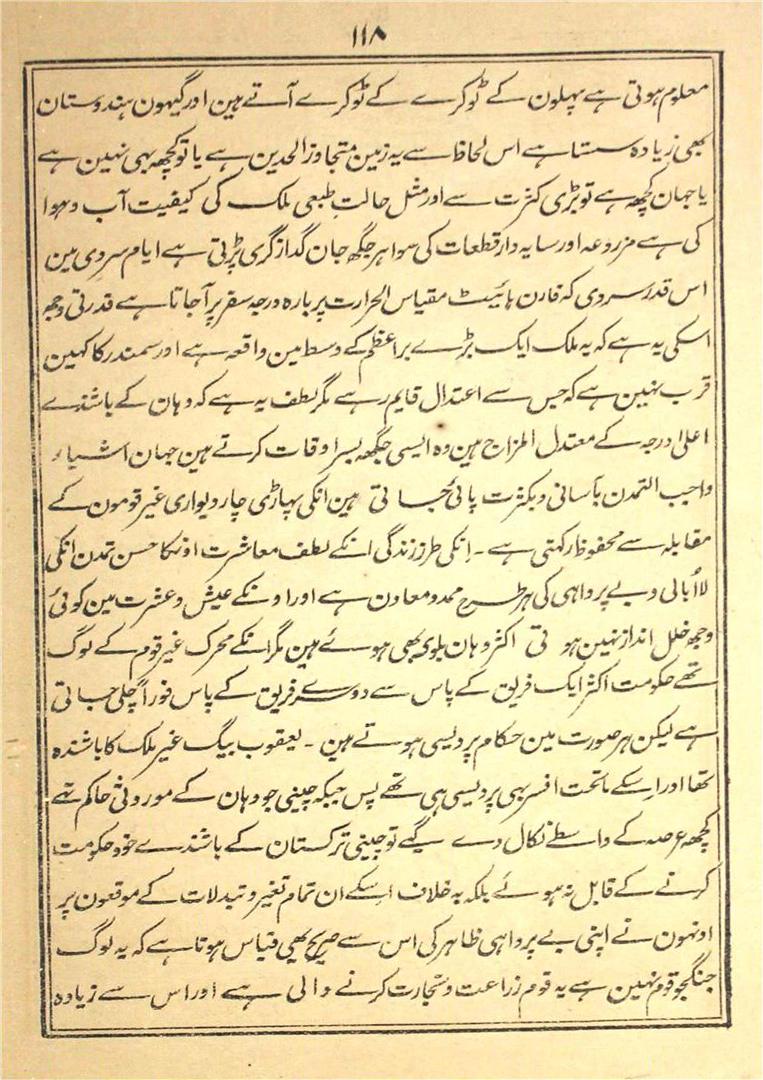 ۱۱۸
معلوم ہوتی ہے پہلون کے ٹوکرے کے ٹوکرے آتے ہین اور گیہون ہندوستان
بھی زیادہ سستا ہے اس لحاظ سے یہ زمین متجاوز الحدین ہے یا تو کچھہ بہی نہین ہے
یا جہان کچھہ ہے تو بڑی کثرت سے اور مثل حالت طبعی ملک کی کیفیت آب و ہوا
کی ہے مزروعہ اور سایہ دار قطعات کی سوا ہر جگھ جان گداز گرمی پڑتی ہے ایام سردی مین
اس قدر سردی کہ فارن ہائیٹ مقیاس الحرارت پر بارہ درجہ سفر پر آجاتا ہے قدرتی وجھ
اسکی یہ ہے کہ یہ ملک ایک بڑے براعظم کے وسط مین واقعہ ہے اور سمندر کا کہین
قرب نہین ہے کہ جس سے اعتدال قایم رہے مگر لطف یہ ہے کہ وہان کے باشندے
اعلیٰ درجہ کے معتدل المزاج ہین وہ ایسی جگھہ بسر اوقات کرتے ہین جہان اشیاء
واجب التمدن بآسانی و بکثرت پائی جاتی ہین انکی پہاڑی چار دیواری غیر قومون کے
مقابلہ سے محفوظ رکہتی ہے ۔ اِنکی طرز زندگی انکے لطف معاشرت اونکا حسن تمدن انکی
لااُبالی و بے پرواہی کی ہر طرح ممد و معاون ہے اور اونکے عیش و عشرت مین کوئی
وجھ خلل انداز نہین ہوتی اکثر وہان بلوی بھی ہوئے ہین مگر انکے محرک غیر قوم کے لوگ
تھے حکومت اکثر ایک فریق کے پاس سے دوسرے فریق کے پاس فوراً چلی جاتی
ہے لیکن ہر صورت مین حکام پردیسی ہوتے ہین ۔ یعقوب بیگ غیر ملک کا باشندہ
تھا اور اِسکے ماتحت افسر بہی پردیسی ہی تھے پس جبکہ چینی جو وہان کے موروثی حاکم تہے
کچھہ عرصہ کے واسطے نکال دے گیے تو چینی ترکستان کے باشندے خود حکومت
کرنے کے قابل نہ ہوئے بلکہ بہ خلاف اِسکے ان تمام تغیر و تبدلات کے موقعون پر
اونہون نے اپنی بے پرواہی ظاہر کی اس سے صریح بھی قیاس ہوتا ہے کہ یہ لوگ
جنگجو قوم نہین ہے یہ قوم زراعت و تجارت کرنے والی ہے اور اس سے زیادہ